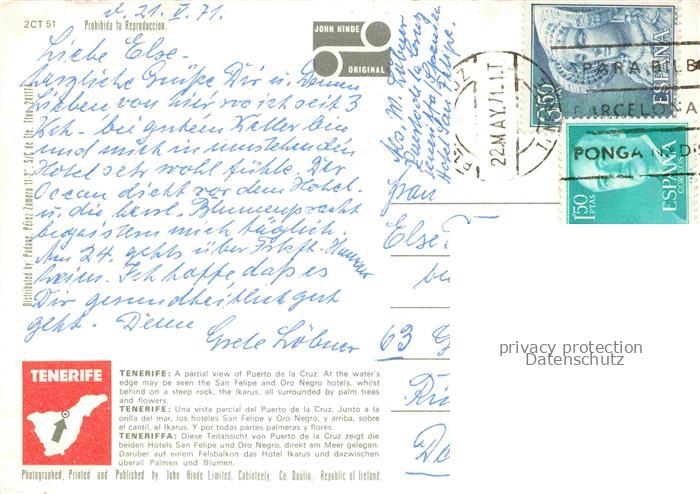 2CT 51
Prohibida la Reproduccion.
d. 21. V. 71.
JOHN HINDE
ORIGINAL
Liebe Else.
herzliche Grüße Dir u. Deinen
Lieben von hier wo ich seit 3
Wch. bei gutem Wetter bin
und mich in umstehendem
Hotel sehr wohl fühle. Der
Ocean dicht vor dem Hotel
u. die herrl. Blumenpracht
begeistern mich täglich.
Am 24. gehts über Frkft. Hannover
heim. Ich hoffe daß es
Dir gesundheitlich gut
geht. Deine
Grete Löbner
Abs. M. Löbner
Puerto de la Cruz
Teneriffa/Spanien
Hotel San Felipe.
22.MAY.71
ESPAÑA
BARCELONA
PONGA
1'50 PTAS
ESPAÑA
CORREOS
Frau
Else
63
privacy protection
Datenschutz
TENERIFE
TENERIFE: A partial view of Puerto de la Cruz. At the water's
edge may be seen the San Felipe and Oro Negro hotels, whilst
behind on a steep rock, the Ikarus, all surrounded by palm trees
and flowers.
TENERIFE: Una vista parcial del Puerto de la Cruz. Junto a la
orilla del mar, los hoteles San Felipe y Oro Negro, y arriba, sobre
el cantil, el Ikarus. Y por todas partes palmeras y flores.
TENERIFFA: Diese Teilansicht von Puerto de la Cruz zeigt die
beiden Hotels San Felipe und Oro Negro, direkt am Meer gelegen.
Darüber auf einem Felsbalkon das Hotel Ikarus und dazwischen
überall Palmen und Blumen.
Photographed, Printed and Published by John Hinde Limited, Cabinteely, Co. Dublin, Republic of Ireland.